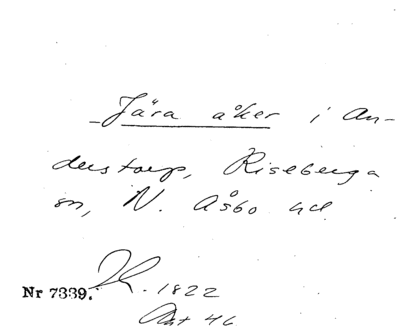 Jära åker i An-
derstorp, Riseberga
sn, N. Åsbo hd
Nr 7339. R. 1822
Akt 46